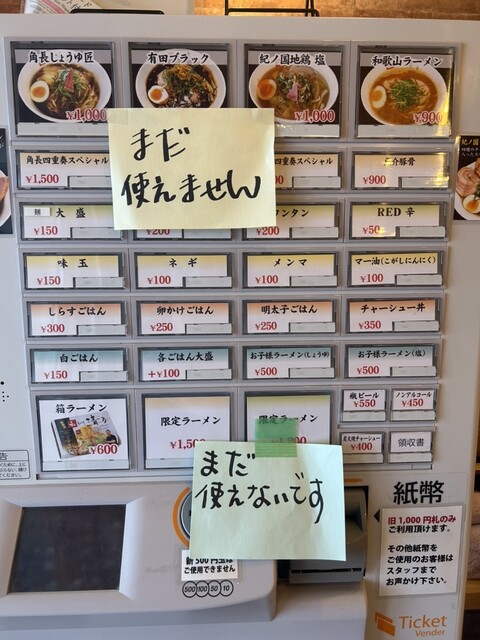 角長しょうゆ匠
¥1,000
有田ブラック
紀ノ国地鶏 塩
¥1,000
和歌山ラーメン
¥900
まだ
使えません
角長四重奏スペシャル
¥1,500
四重奏スペシャル
魚介豚骨
¥900
麺 大盛
¥150
¥200
ワンタン
¥200
RED辛
¥50
味玉
¥150
ネギ
¥100
メンマ
¥100
マー油(こがしにんにく)
¥100
しらすごはん
¥300
卵かけごはん
¥250
明太子ごはん
¥250
チャーシュー丼
¥350
白ごはん
¥150
各ごはん大盛
+¥100
お子様ラーメン(しょうゆ)
¥500
お子様ラーメン(塩)
¥500
瓶ビール
¥550
ノンアルコール
¥450
箱ラーメン
¥600
限定ラーメン
¥1,500
限定ラーメン
炭火焼チャーシュー
¥400
領収書
まだ
使えないです
新500円玉は
ご使用できません
500 100 50 10
紙幣
旧1,000円札のみ
ご利用頂けます。
その他紙幣を
ご使用のお客様は
スタッフまで
お声かけ下さい。
Ticket
Vender